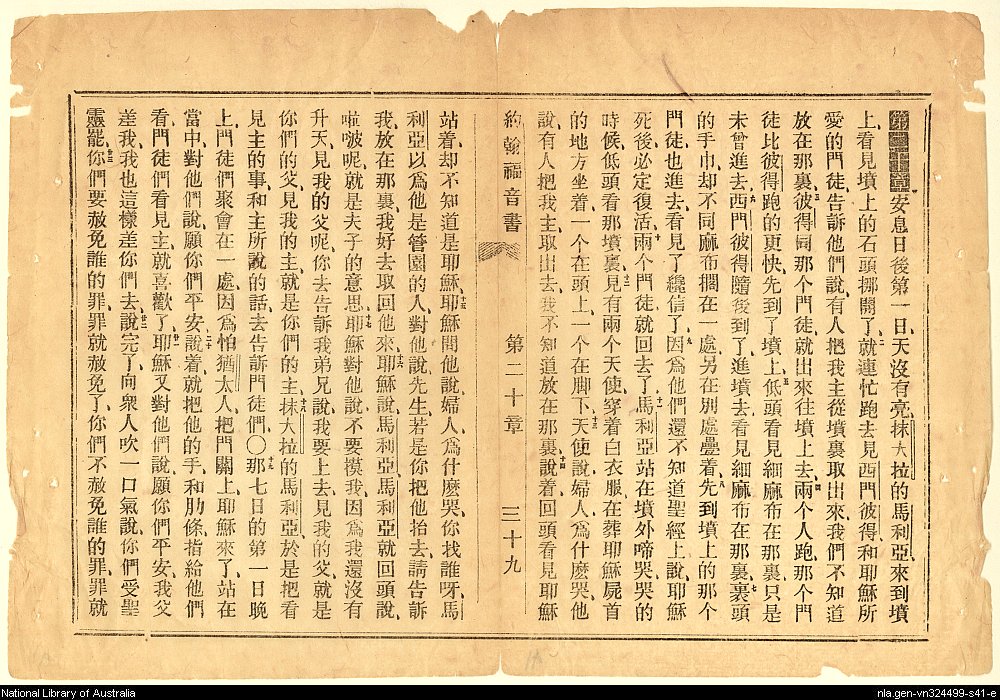 第二十章安息日後第一日、天沒有亮、抹大拉的馬利亞、來到墳
上、看見墳上的石頭挪開了、二就連忙跑去見西門彼得、和耶穌所
愛的門徒、告訴他們說、有人把我主從墳裏取出來、我們不知道
放在那裏、三彼得同那個門徒、就出來往墳上去、四兩個人跑、那個門
徒比彼得跑的更快、先到了墳上、五低頭看見細麻布在那裏、只是
未曾進去、六西門彼得隨後到了、進墳去看見細麻布在那裏、七裹頭
的手巾、却不同麻布擱在一處、另在別處疊着、八先到墳上的那個
門徒也進去、看見了纔信了、九因爲他們還不知道聖經上說、耶穌
死後必定復活、十兩個門徒就回去了、十一馬利亞站在墳外啼哭、哭的
時候、低頭看那墳裏、十二見有兩個天使、穿着白衣服、在葬耶穌屍首
的地方坐着、一个在頭上、一個在脚下、十三天使說、婦人爲什麽哭、他
說、有人把我主取出去、我不知道放在那裏、十四說着回頭看見耶穌
約翰福音書 第二十章 三十九
站着、却不知道是耶穌、十五耶穌問他說、婦人爲什麽哭、你找誰呀、馬
利亞以爲他是管園的人、對他說、先生、若是你把他抬去、請告訴
我、放在那裏、我好去取回他來、十六耶穌說、馬利亞、馬利亞就回頭說、
啦啵呢、就是夫子的意思、十七耶穌對他說、不要摸我、因爲我還沒有
升天見我的父呢、你去告訴我弟兄、說我要上去見我的父、就是
你們的父、見我的主、就是你們的主、十八抹大拉的馬利亞、於是把看
見主的事、和主所說的話、去告訴門徒們〇十九那七日的第一日晚
上、門徒們聚會在一處、因爲怕猶太人、把門關上、耶穌來了、站在
當中、對他們說、願你們平安、二十說着就把他的手和肋條指給他們
看、門徒們看見主就喜歡了、廿一耶穌又對他們說、願你們平安、我父
差我、我也這樣差你們去、廿二說完了、向衆人吹一口氣、說、你們受聖
靈罷、廿三你們要赦免誰的罪、罪就赦免了、你們不赦免誰的罪、罪就
National Library of Australia
nla.gen-vn324499-s41-e